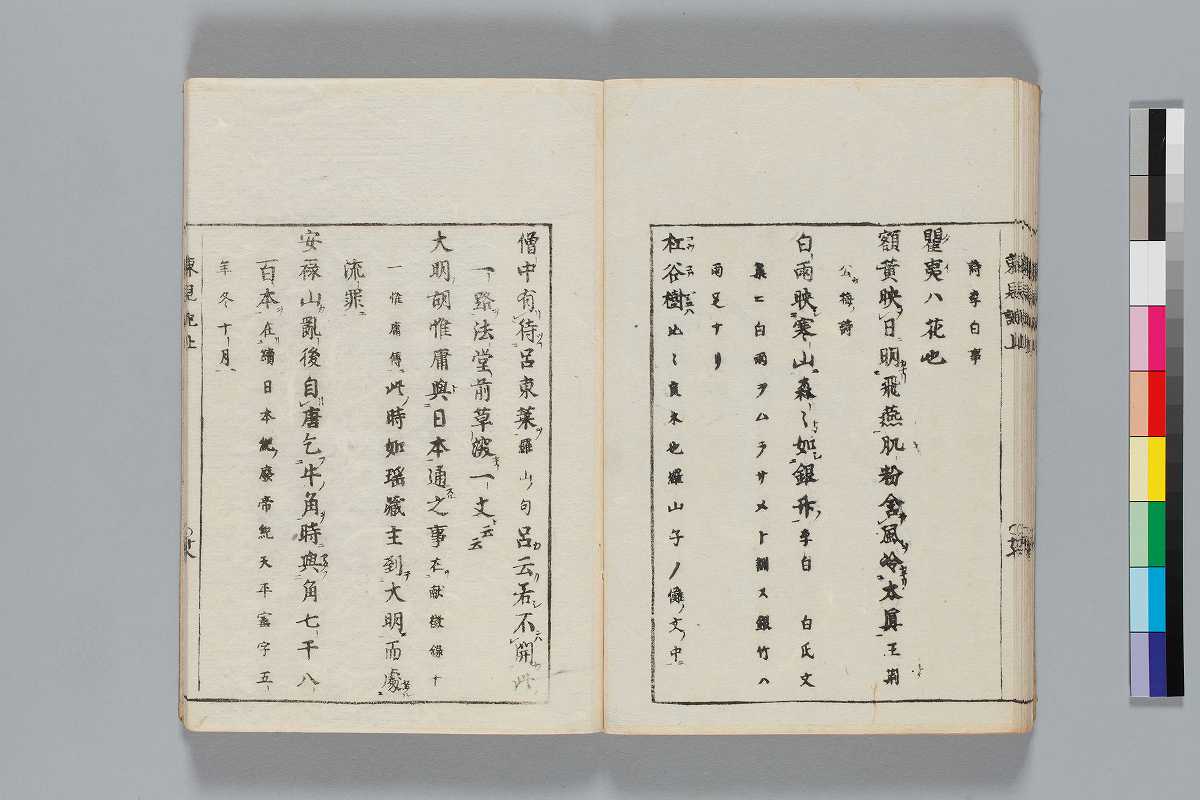 詩李白事
瞿夷ハ花也
額黄映日明飛燕肌粉含風冷太真王荊
公梅詩
白雨映寒山森々如銀竹李白 白氏文
集ニ白雨ヲムラサメト訓ス銀竹ハ
雨足ナリ
杜谷樹 良木也羅山子ノ 文中
僧中有待呂東莱羅山句呂云若不開此
一路法堂前草深一丈云云
大明胡惟庸與日本通之事在献徴録十
一惟庸傳此時如瑶蔵主到大明而處
流罪
安禄山亂後自唐乞牛角時與角七千八
百本在續日本紀廢帝紀天平宝字五
年冬十月